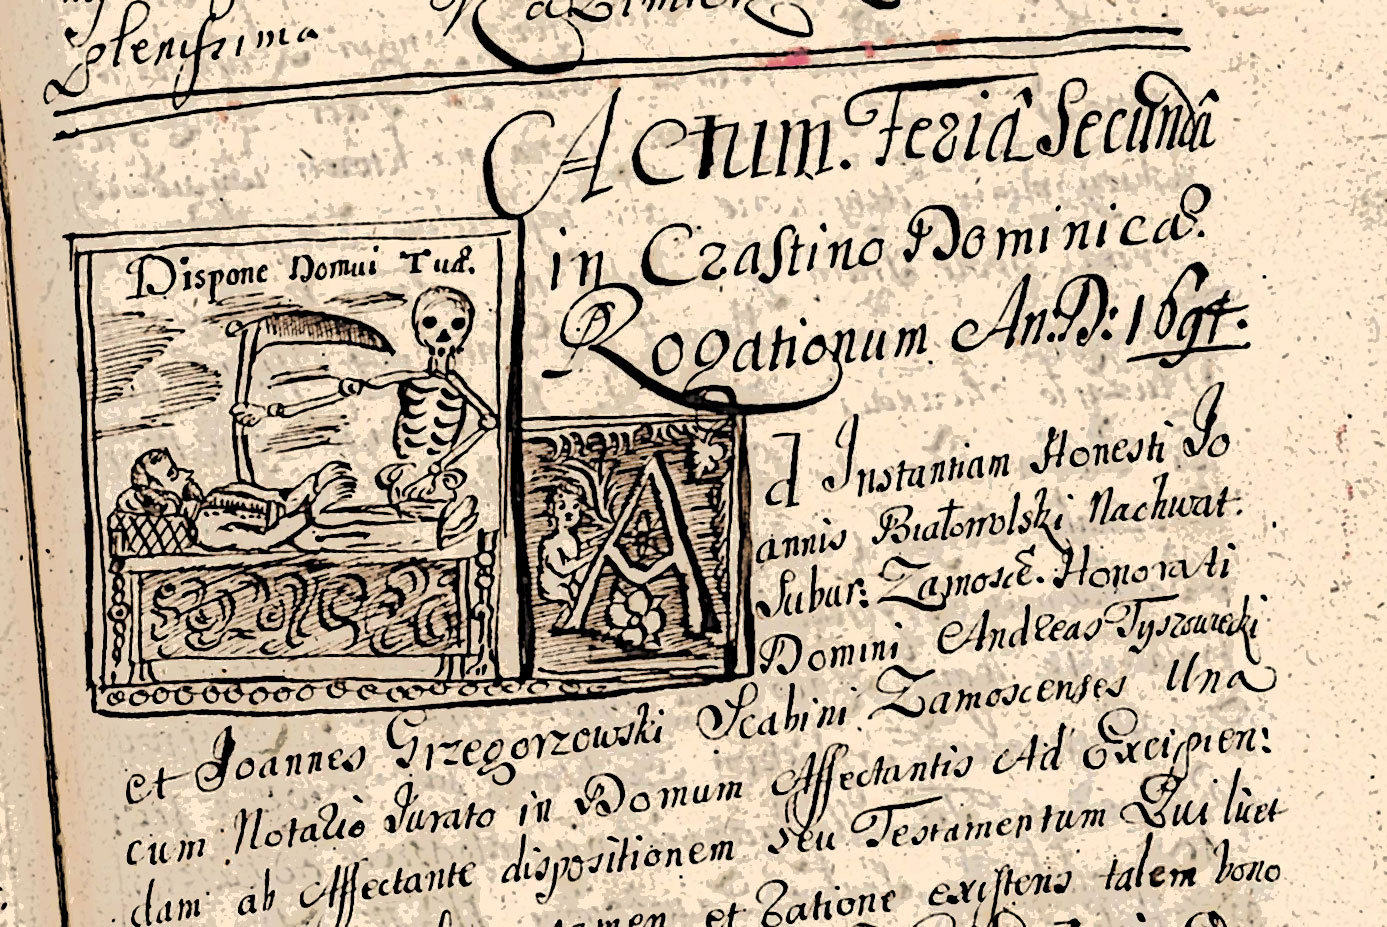 plenissima
Actum. Feriâ Secundâ
in Crastino Dominicæ.
Rogationum An:D: 1697.
Dispone Domui Tuæ.
Ad Instantiam Honesti Jo
annis Białowolski Nachwat.
Subur: Zamosce. Honorati
Domini Andreas Tyszowiecki
et Joannes Grzegorzowski Scabini Zamoscenses Una
cum Notario Jurato in Domum Affectantis Ad Excipien:
dam ab Affectante dispositionem seu Testamentum Qui licet
tamen et Ratione existens talem bono